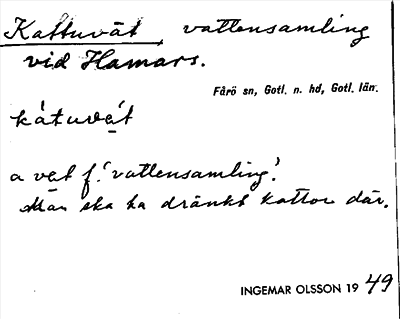 Kattuvät, vattensamling
vid Hamars.
Fårö sn, Gotl. n. hd, Gotl. län.
kátuvát
a vat f. 'vattensamling'.
Man ska ha dränkt kattor där.
INGEMAR OLSSON 1949